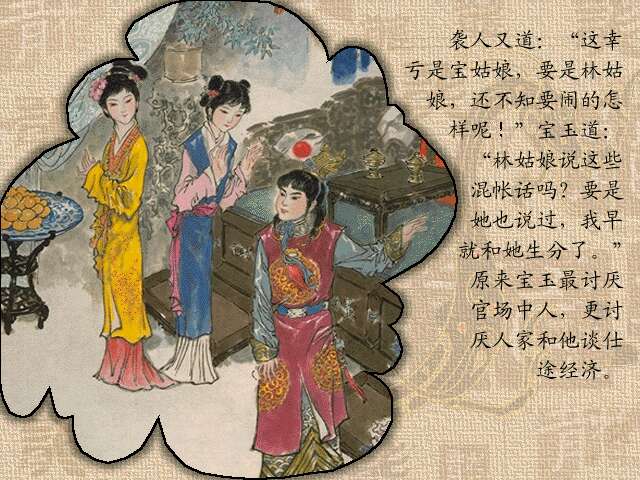 袭人又道：“这幸
亏是宝姑娘，要是林姑
娘，还不知要闹的怎
样呢！”宝玉道：
“林姑娘说这些
混帐话吗？要是
她也说过，我早
就和她生分了。”
原来宝玉最讨厌
官场中人，更讨
厌人家和他谈仕
途经济。